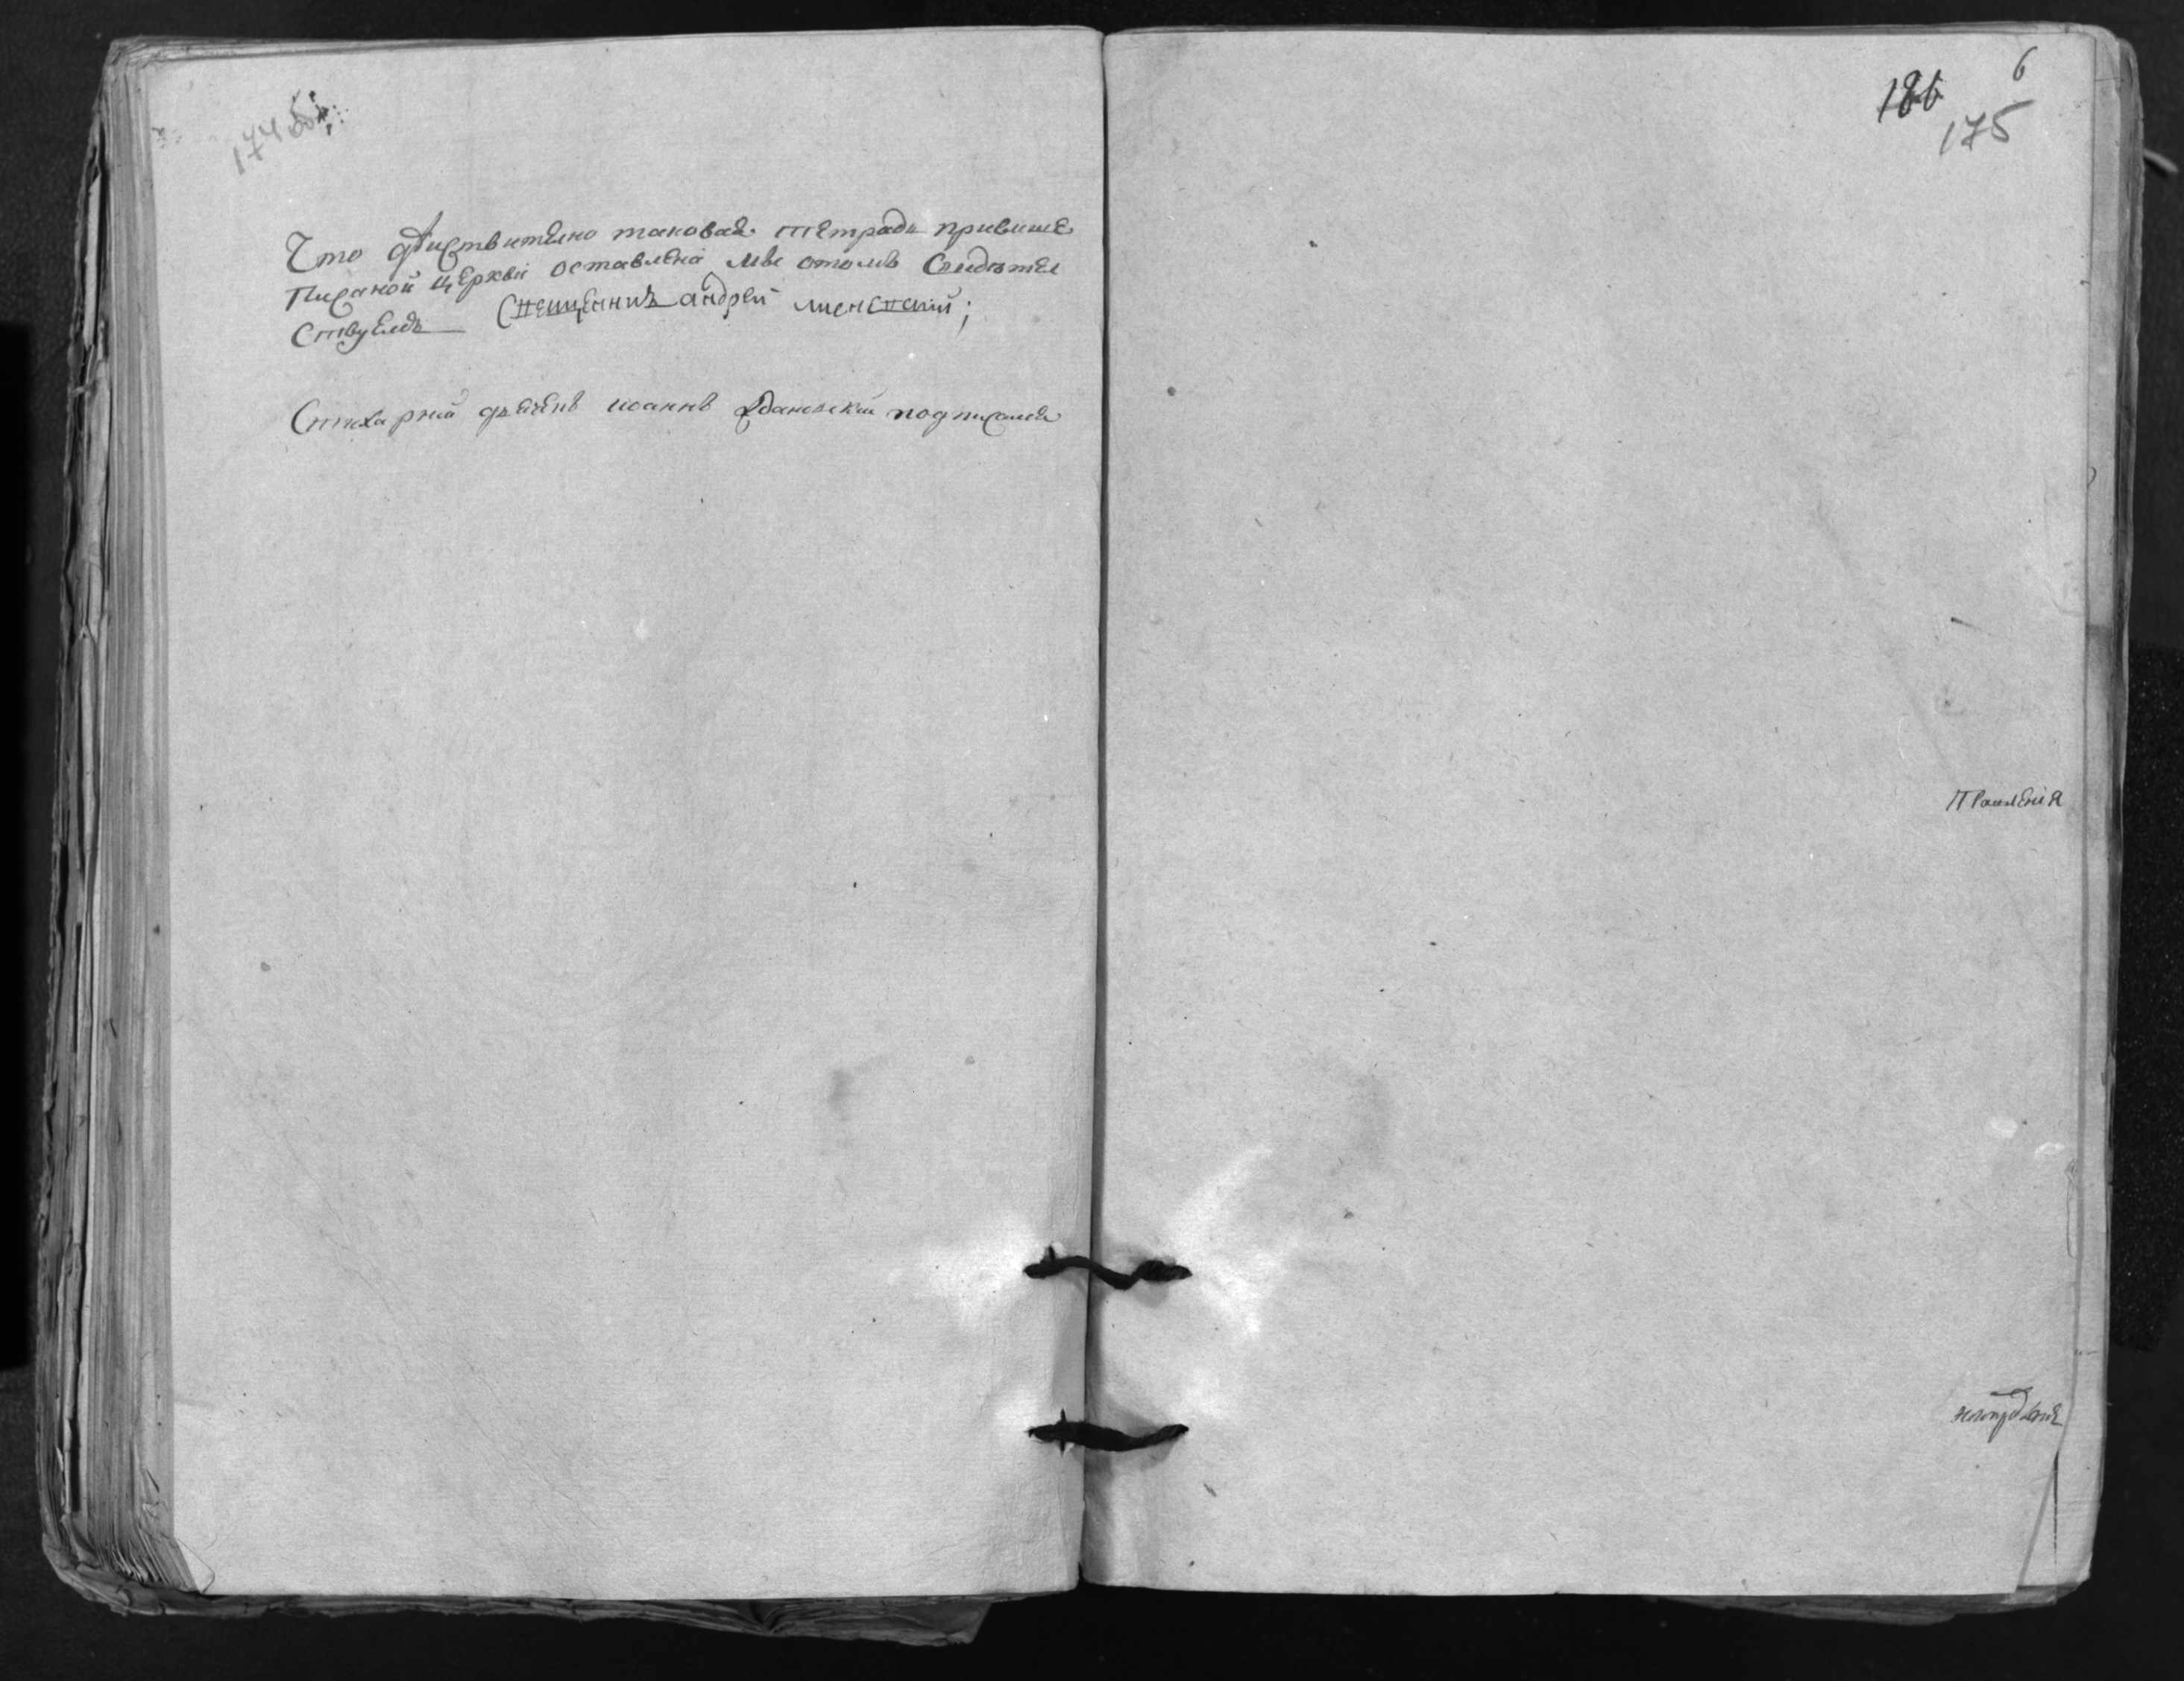 174 об.
Что действително таковая тетрадь привыше
писаной церквы оставлена мве отомъ свидѣтел
ствуемъ Священникъ андрей менский;
Стихарний дьячекъ иоаннъ Ждановский подписался
186
6
175
правления